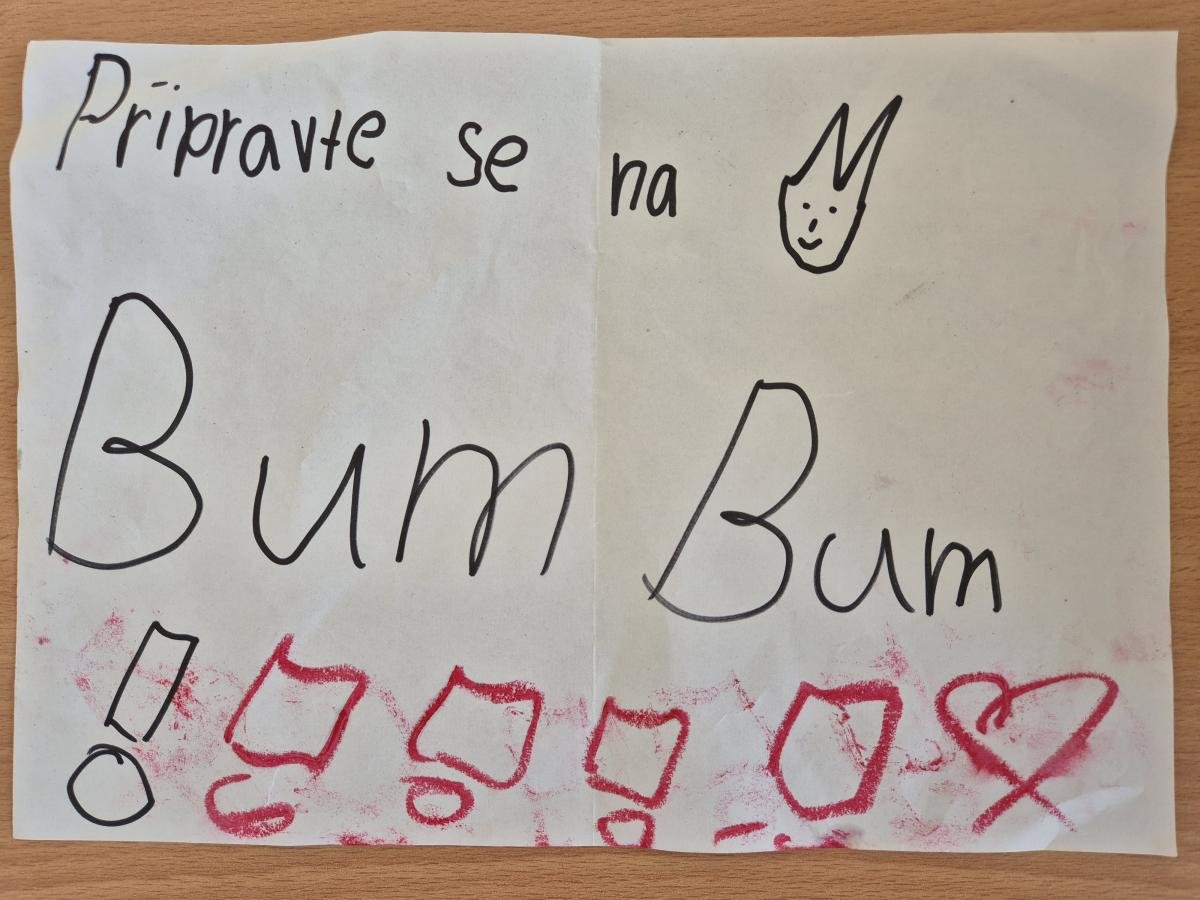 Připravte se na
Bum Bum
! ! ! ! !